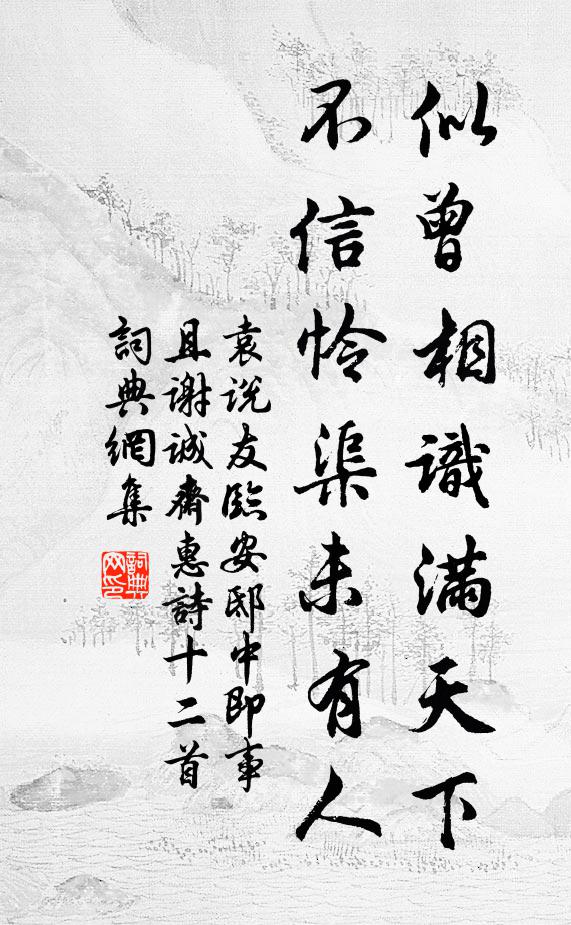 似曾相識滿天下
不信怜渠未有人
袁说友臨安邸中即事
且谢诚齋惠詩十二首
詞典網集
詞典
网印